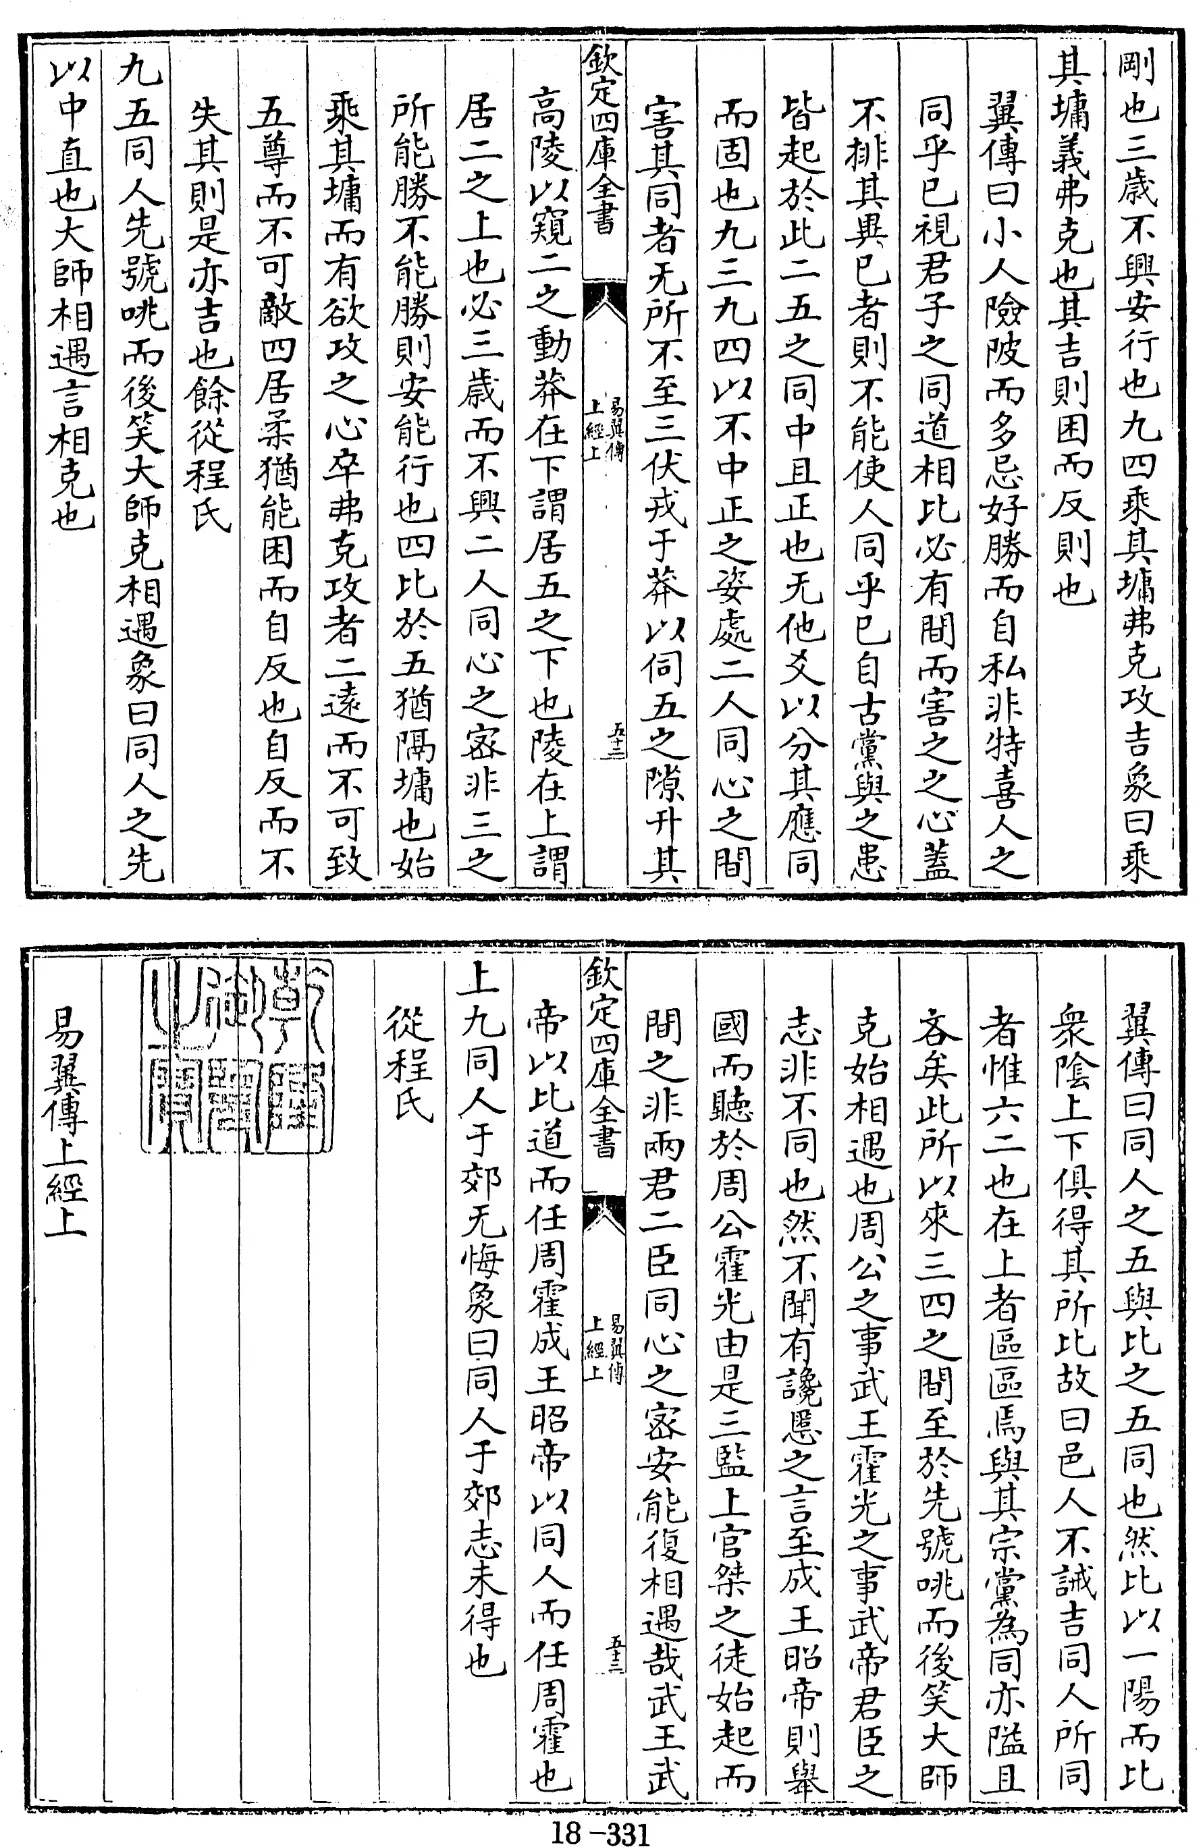 剛也三歳不興安行也九四乘其墉弗克攻吉象曰乘
其墉義弗克也其吉則困而反則也
翼傳曰小人險陂而多忌好勝而自私非特喜人之
同乎已視君子之同道相比必有間而害之之心蓋
不排其異已者則不能使人同乎已自古黨與之患
皆起於此二五之同中且正也无他爻以分其應同
而固也九三九四以不中正之姿處二人同心之間
害其同者无所不至三伏戎于莽以伺五之隙升其
欽定四庫全書
易翼傳
上經上
五十三
高陵以窺二之動莽在下謂居五之下也陵在上謂
居二之上也必三歳而不興二人同心之宻非三之
所能勝不能勝則安能行也四比於五猶隔墉也始
乘其墉而有欲攻之心卒弗克攻者二遠而不可致
五尊而不可敵四居柔猶能困而自反也自反而不
失其則是亦吉也餘從程氏
九五同人先號咷而後笑大師克相遇象曰同人之先
以中直也大師相遇言相克也
翼傳曰同人之五與比之五同也然比以一陽而比
衆陰上下俱得其所比故曰邑人不誡吉同人所同
者惟六二也在上者區區焉與其宗黨為同亦隘且
吝矣此所以來三四之間至於先號咷而後笑大師
克始相遇也周公之事武王霍光之事武帝君臣之
志非不同也然不聞有讒慝之言至成王昭帝則舉
國而聽於周公霍光由是三監上官桀之徒始起而
間之非兩君二臣同心之宻安能復相遇哉武王武
欽定四庫全書
易翼傳
上經上
五十三
帝以比道而任周霍成王昭帝以同人而任周霍也
上九同人于郊无悔象曰同人于郊志未得也
從程氏
乾隆御覽之寶
易翼傳上經上
18-331